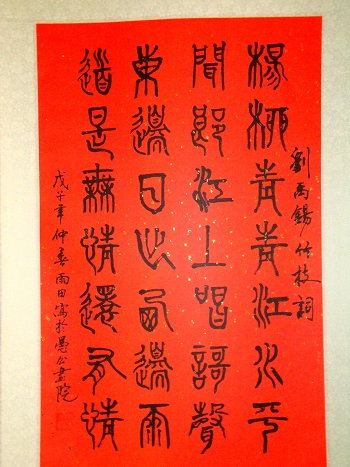 劉禹錫竹枝詞
楊柳青青江水平
聞郎江上唱謌聲
東邊日出西邊雨
道是無情還有情
戊子年仲春雨田寫於愚公畫院